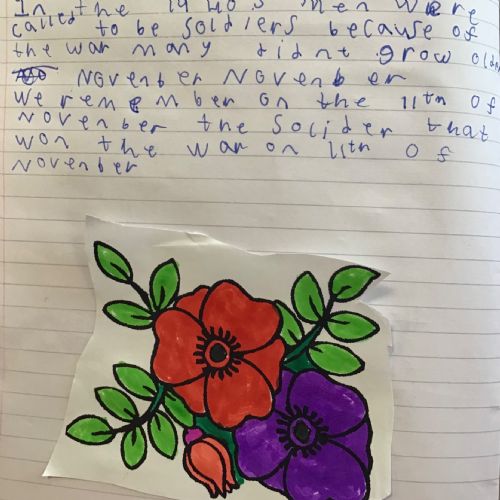 In the 1940s men were
called to be soldiers because of
the war many didnt grow older
November November
We remember on the 11th of
November the Solider that
won the war on 11th of
November